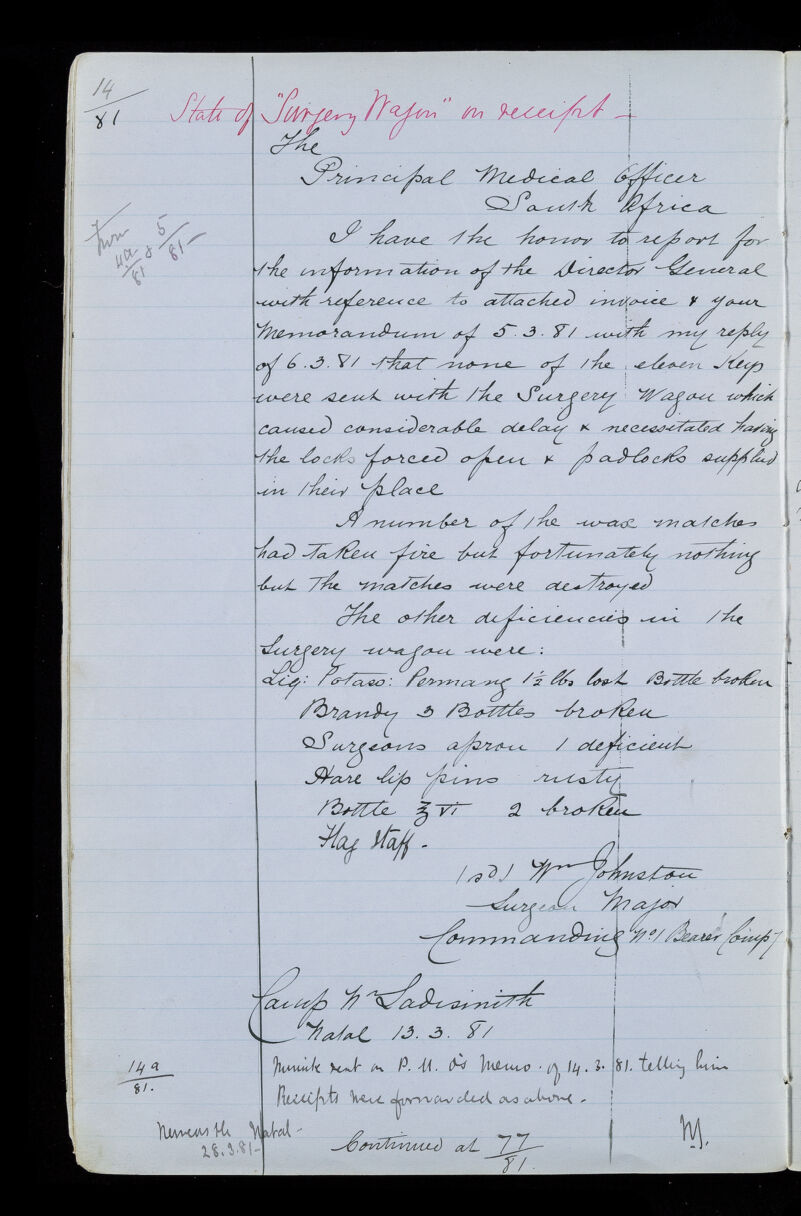 14
81
State of "Surgery Wagon" on receipt -
The
Principal Medical Officer
South Africa
From
4a/81 & 5/81 -
I have the honor to report for
the information of the Director General
with reference to attached invoice & your
Memorandum of 5.3.81 with my reply
of 6.3.81 that none of the eleven Keys
were sent with the Surgery Wagon which
caused considerable delay & necessitated having
the locks forced open & padlocks supplied
in their place
A number of the wax matches
had taken fire but fortunately nothing
but the matches were destroyed
The other deficiencies in the
Surgery wagon were:
Liq: Potass: Permang 1½ lbs lost Bottle broken
Brandy 3 Bottles broken
Surgeons apron 1 deficient
Hare lip pins rusty
Bottle ℥VI 2 broken
Flag Staff -
/sd/ Wm Johnston
Surgeon Major
Commanding No 1 Bearer Compy
Camp Nr Ladismith
Natal 13.3.81
14a
81.
Minute sent on P.M.O's Memo. of 14.3.81. telling him
Receipts were forwarded as above -
Newcastle Natal -
28.3.81 -
Continued at 77
81.